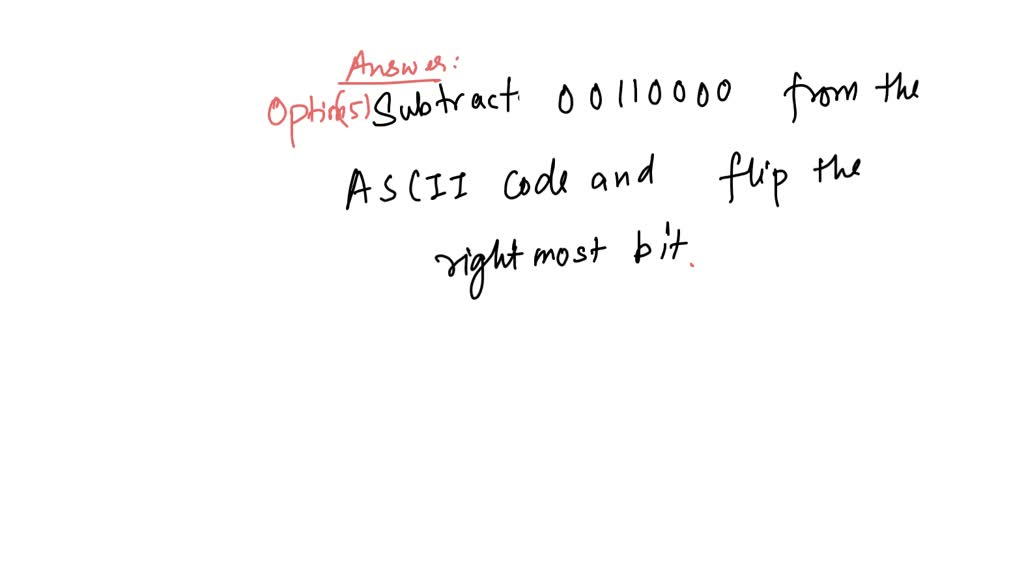 Answer:
Option(5) Subtract 00110000 from the
ASCII code and flip the
rightmost bit.